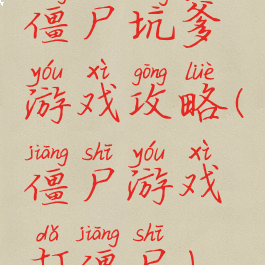 僵尸坑爹
yóu xì gōng lüè
游戏攻略(
jiāng shī yóu xì
僵尸游戏
dǎ jiāng shī
打僵尸)